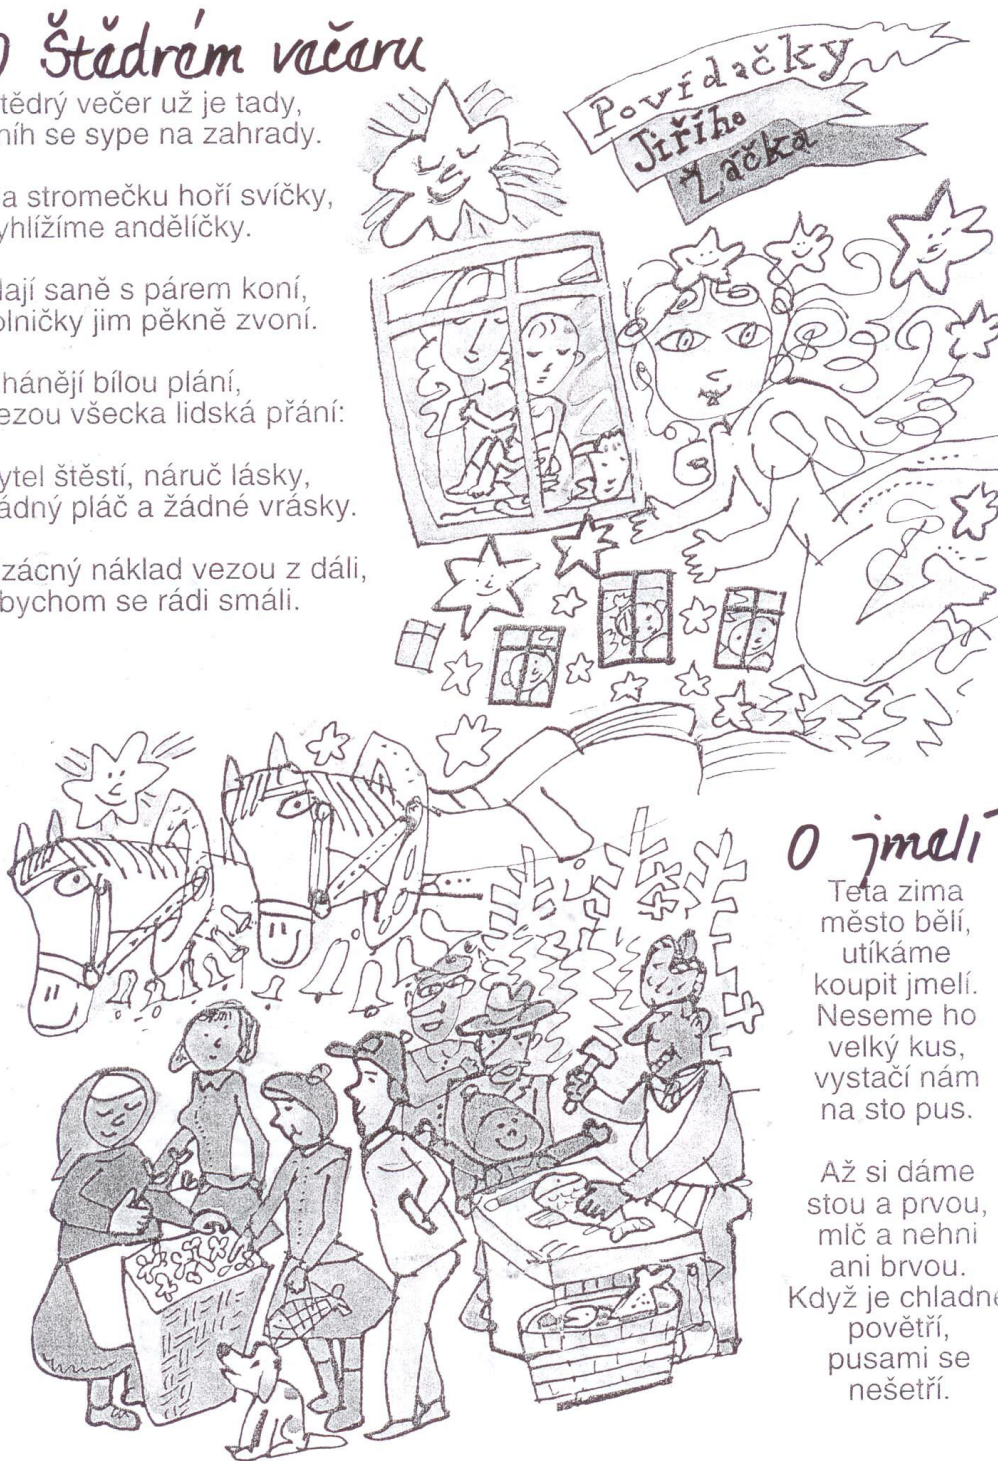 O Štědrém večeru
tědrý večer už je tady,
níh se sype na zahrady.
a stromečku hoří svíčky,
yhlížíme andělíčky.
lají saně s párem koní,
olničky jim pěkně zvoní.
hánějí bílou plání,
ezou všecka lidská přání:
ytel štěstí, náruč lásky,
ádný pláč a žádné vrásky.
zácný náklad vezou z dáli,
bychom se rádi smáli.
Povídačky
Jiřího
Žáčka
O jmelí
Teta zima
město bělí,
utíkáme
koupit jmelí.
Neseme ho
velký kus,
vystačí nám
na sto pus.
Až si dáme
stou a prvou,
mlč a nehni
ani brvou.
Když je chladné
povětří,
pusami se
nešetří.